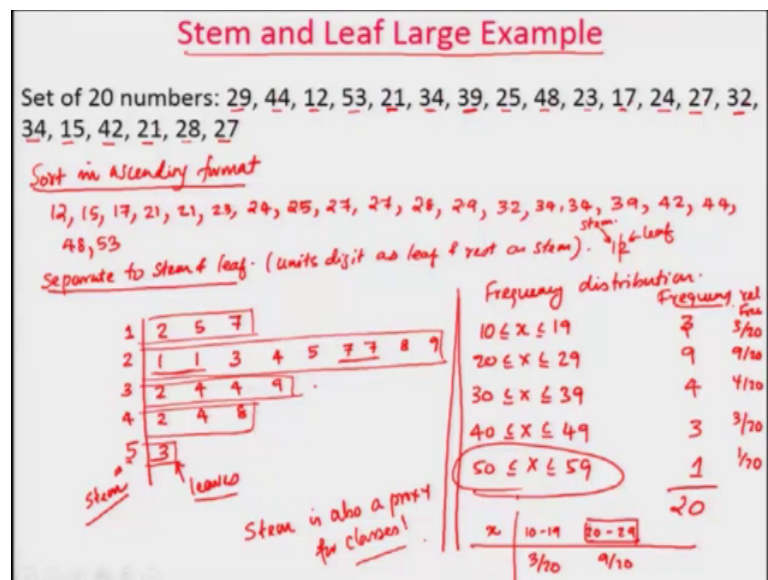 Stem and Leaf Large Example
Set of 20 numbers: 29, 44, 12, 53, 21, 34, 39, 25, 48, 23, 17, 24, 27, 32,
34, 15, 42, 21, 28, 27
Sort in ascending format
12, 15, 17, 21, 21, 23, 24, 25, 27, 27, 28, 29, 32, 34, 34, 39, 42, 44,
48, 53
Separate to stem & leaf. (units digit as leaf & rest as stem).
stem
12 ← leaf
1 | 2 5 7
2 | 1 1 3 4 5 7 7 8 9
3 | 2 4 4 9
4 | 2 4 8
5 | 3
stem
leaves
Stem is also a proxy
for classes!
Frequency distribution.
Frequency rel
10 ≤ x ≤ 19 3 3/20
20 ≤ x ≤ 29 9 9/20
30 ≤ x ≤ 39 4 4/20
40 ≤ x ≤ 49 3 3/20
50 ≤ x ≤ 59 1 1/20
20
x | 10-19 20-29
3/20 9/20